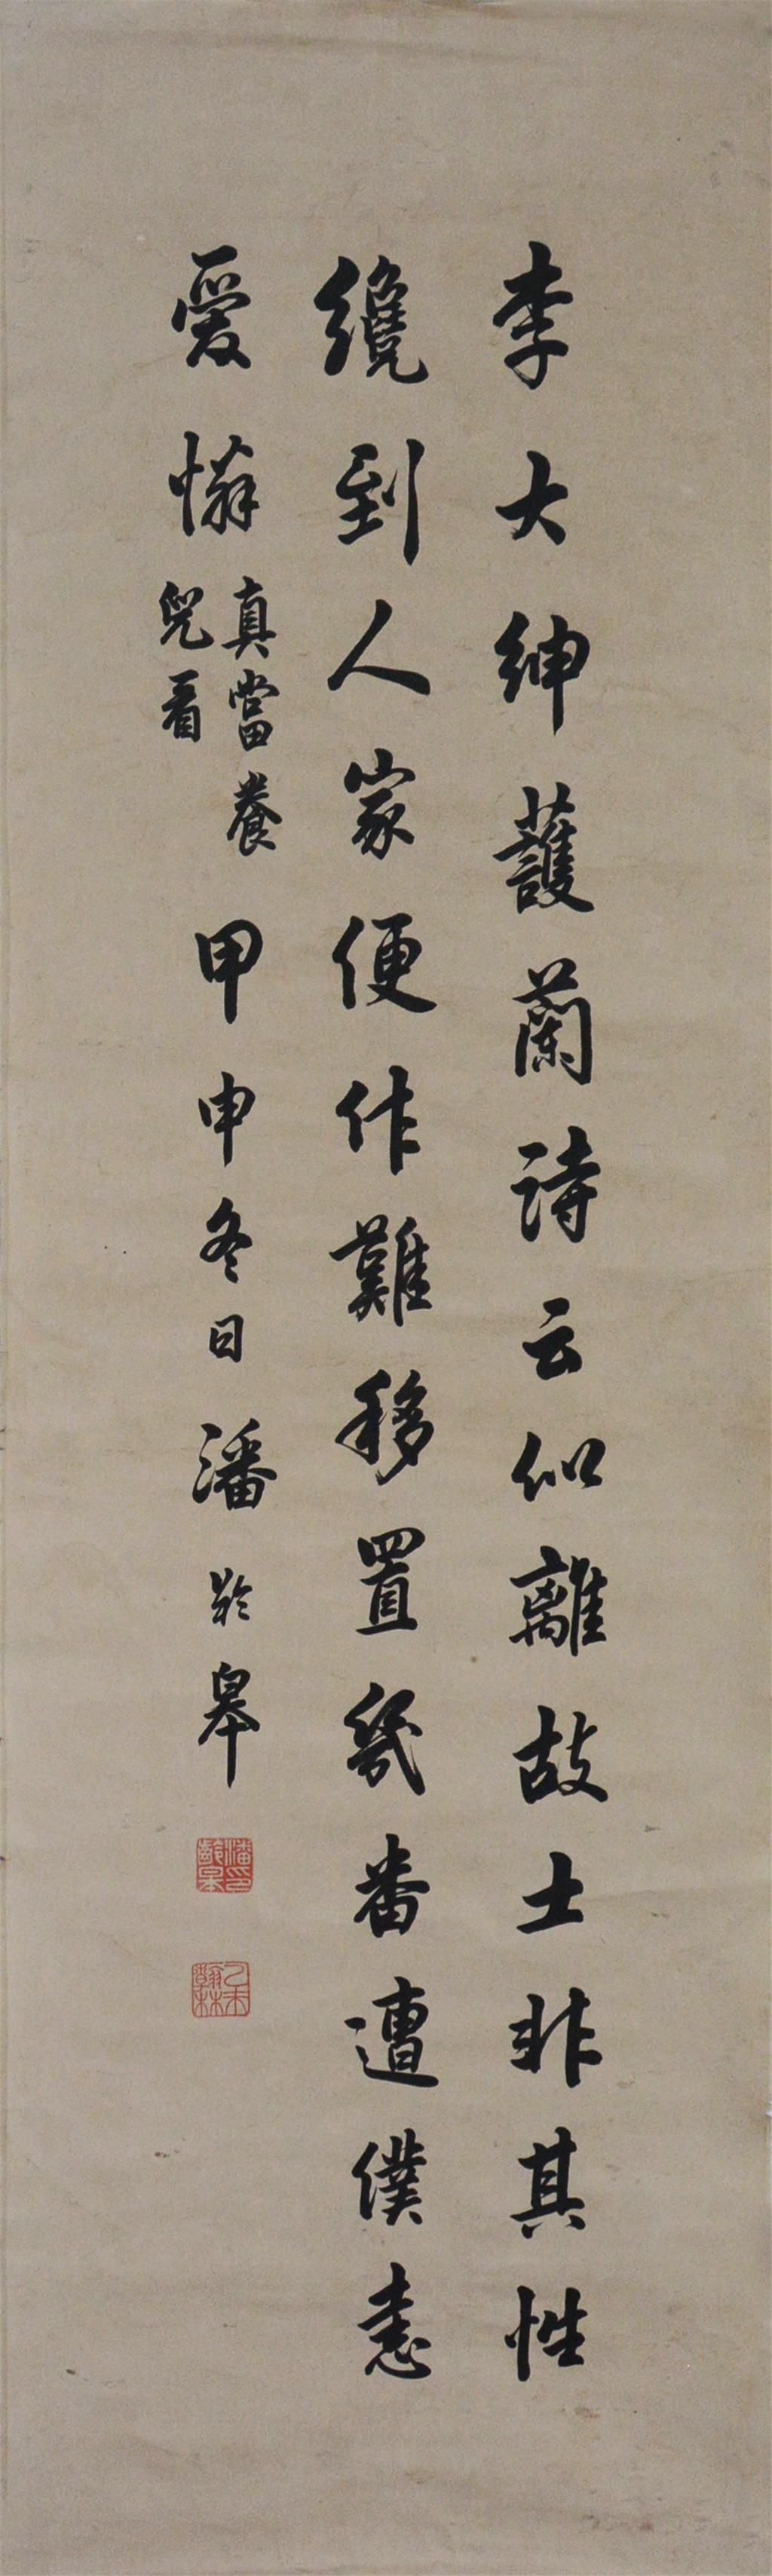 李大紳護蘭詩云似離故土非其性
纔到人家便作難移置幾番遭僕恚
愛憐真當養兒看甲申冬日潘齡皋
潘印齡皋
乙未翰林